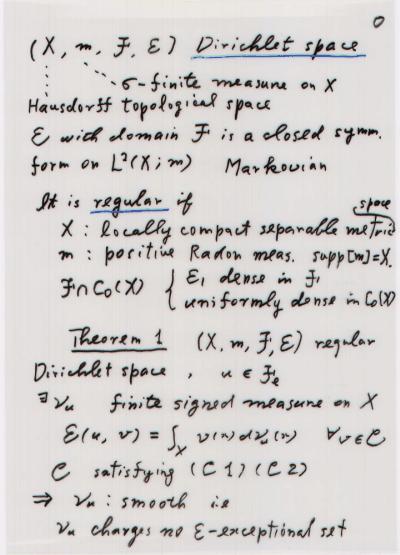 0
(X, m, F, Ɛ) Dirichlet space
σ-finite measure on X
Hausdorff topological space
Ɛ with domain F is a closed symm.
form on L²(X; m) Markovian
It is regular if
X : locally compact separable metric space
m : positive Radon meas. supp[m]=X.
F∩C₀(X) { Ɛ₁ dense in F,
uniformly dense in C₀(X)
Theorem 1 (X, m, F, Ɛ) regular
Dirichlet space , u ∈ Fₑ
∃ νᵤ finite signed measure on X
Ɛ(u, v) = ∫_X v(x) dνᵤ(x) ∀v∈C
C satisfying (C1) (C2)
⇒ νᵤ : smooth i.e
νᵤ charges no Ɛ-exceptional set